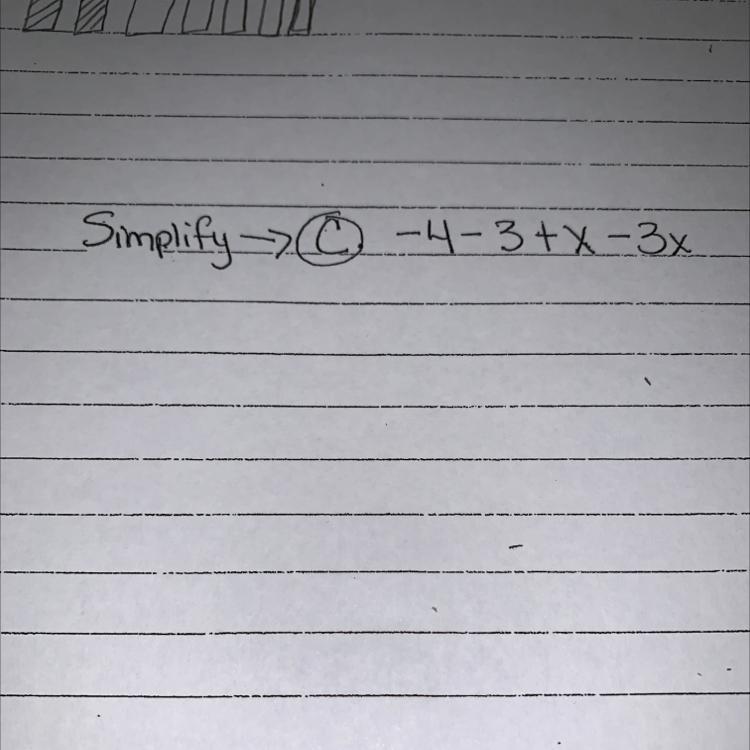 Simplify → C -4-3+x-3x